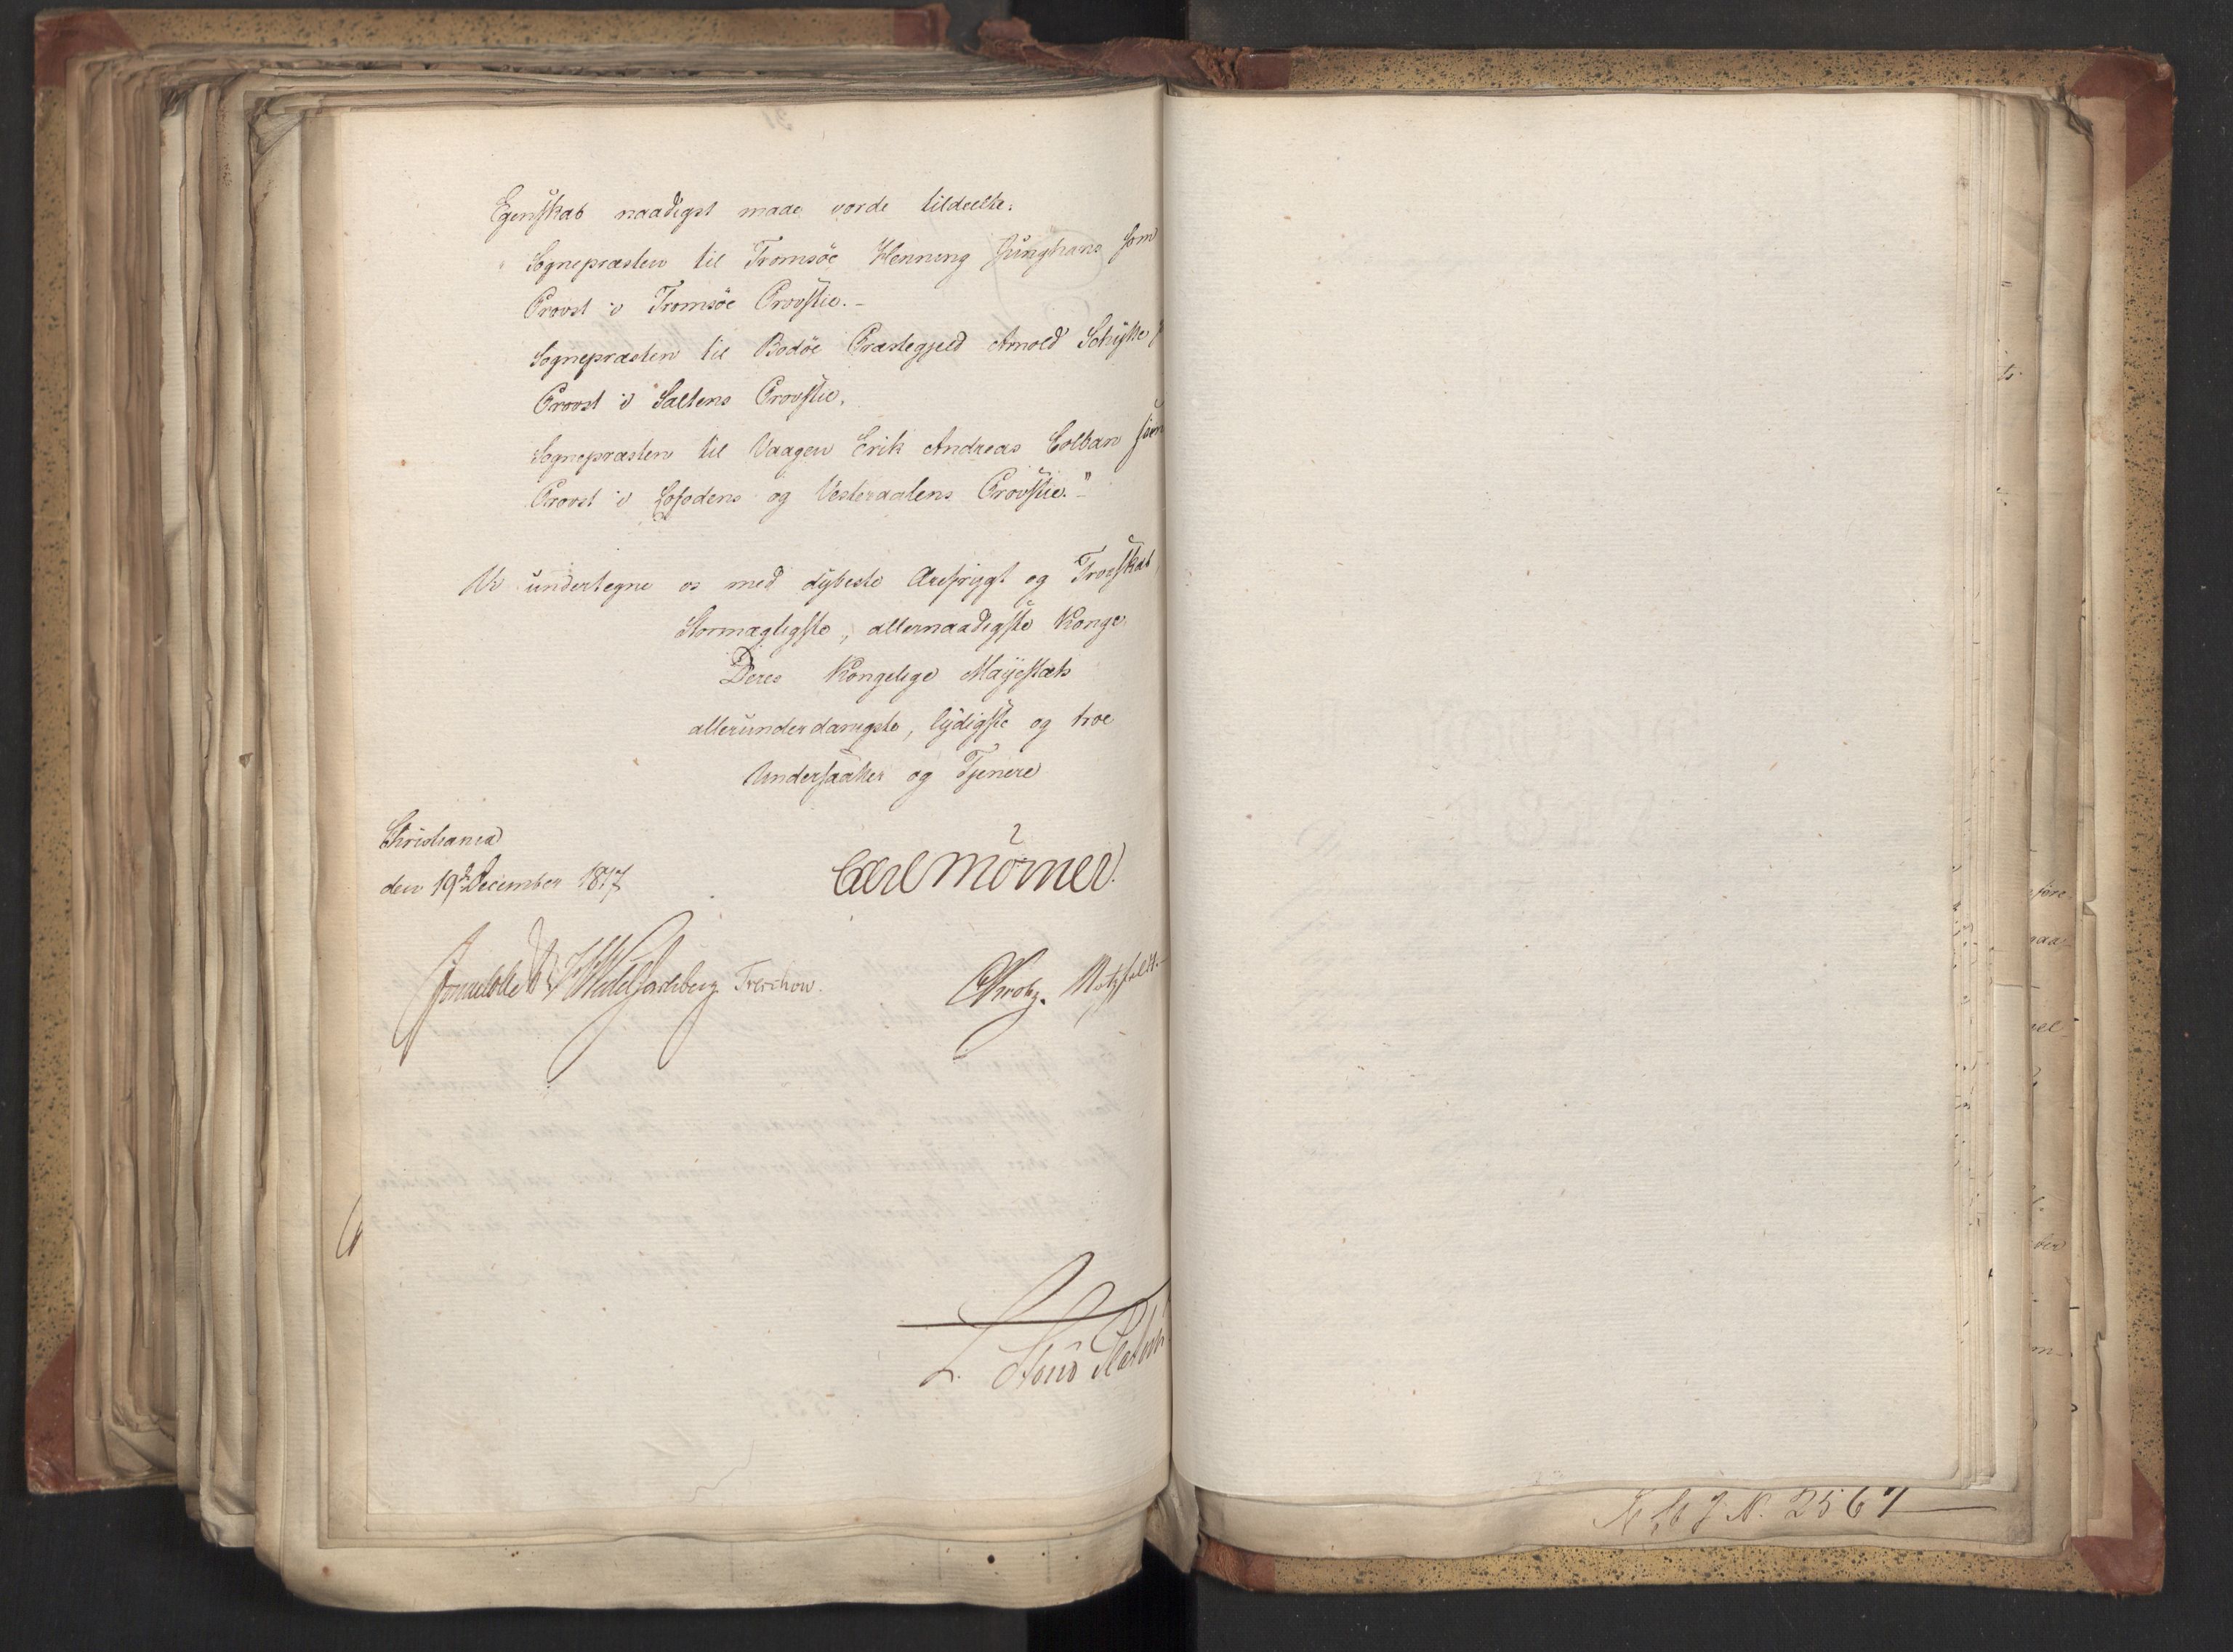 Egenskab naadigst maae vorde tildeelte:
Sognepræsten til Tromsöe Henning Junghans som
Provst i Tromsöe Provstie.-
Sognepræsten til Bodöe Præstegjeld Arnold Schytte
Provst i Saltens Provstie,
Sognepræsten til Vaagen Erik Andreas Colban som
Provst i Lofodens og Vesteraalens Provstie."-
Vi undertegne os med dybeste Ærefrygt og Troeskab,
Stormægtigste, allernaadigste Konge
Deres Kongelige Mayestæts
allerunderdanigste, lydigste og troe
Undersaatter og Tjenere
Christiania
den 19de December 1817
Carl Mörner.
Sommelbill
HWedelJarlsberg Treschow.
CKrohg. Motzfeldt.
L. Stoud Platou
N. 2567